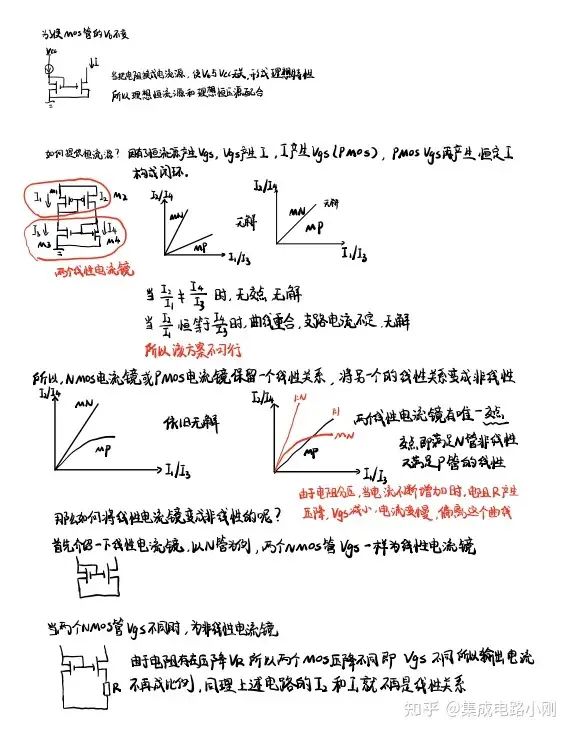 当使MOS管的VG不变
Vcc
I
当把电阻换成电流源,使VG与Vcc无关,形成理想特性
所以理想恒流源和理想恒压源配合
如何提供恒流源? 因有了恒流源产生Vgs,Vgs产生I,I产生Vgs(PMOS),PMOS Vgs再产生恒定I
构成闭环.
I1 M1 I2 M2
I3 M3 I4 M4
两个线性电流镜
I2/I4
MN
MP
无解
I1/I3
I2/I4
MN
MP
无解
I1/I3
当 I2/I1 ≠ I4/I3 时,无交点,无解
当 I2/I1 恒等于 I4/I3 时,曲线重合,支路电流不定,无解
所以该方案不可行
所以,NMOS电流镜或PMOS电流镜保留一个线性关系,将另一个的线性关系变成非线性
I2/I4
MN
MP
依旧无解
I1/I3
I2/I4
1:N
1:1
MN
MP
I1/I3
两个线性电流镜有唯一交点
交点即满足N管非线性
又满足P管的线性
由于电阻分压,当电流不断增加时,电阻R产生
压降,Vgs减小,电流变慢,偏离这个曲线
那么如何将线性电流镜变成非线性的呢?
首先介绍一下线性电流镜,以N管为例,两个NMOS管Vgs一样为线性电流镜
当两个NMOS管Vgs不同时,为非线性电流镜
R
由于电阻存在压降VR 所以两个MOS压降不同即 Vgs 不同所以输出电流
不再成比例,同理上述电路的I2和I1就不再是线性关系
知乎 @集成电路小刚